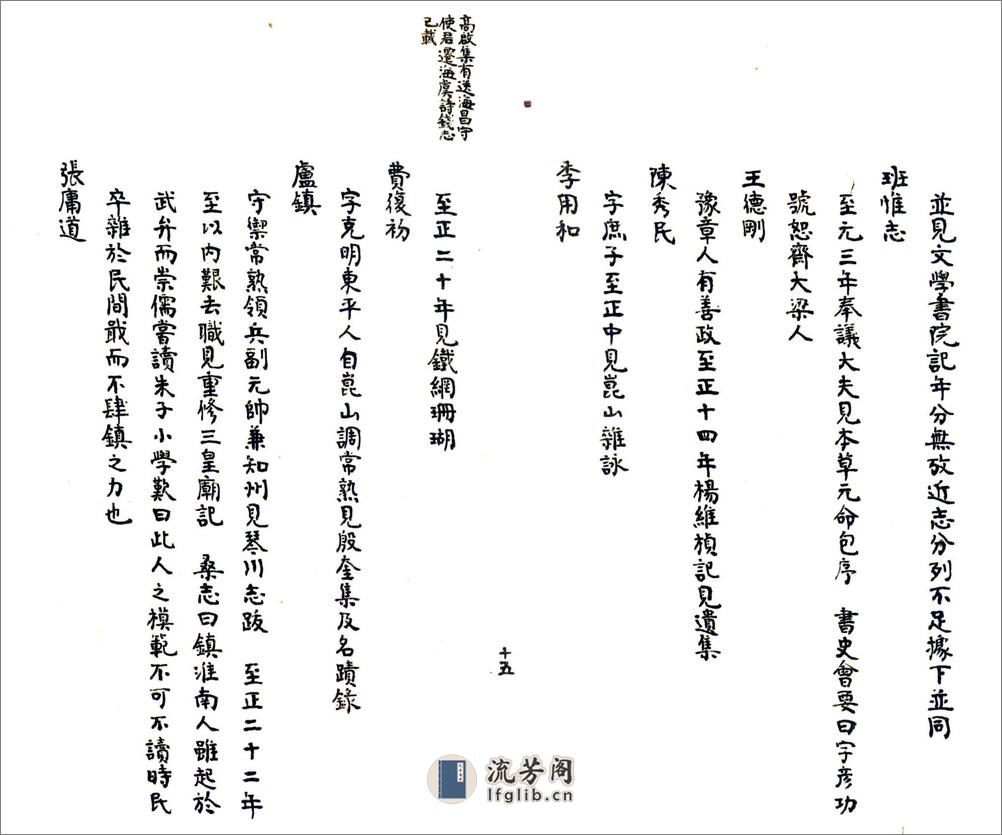 並見文學書院記年分無攷近志分列不足據下並同
班惟志
至元三年奉議大夫見本草元命包序　書史會要曰字彥功
號恕齋大梁人
王德剛
豫章人有善政至正十四年楊維楨記見遺集
陳秀民
字庶子至正中見崑山雜詠
李用和
十五
高啟集有送海昌守
使君遷海虞詩錢志
已載
至正二十年見鐵網珊瑚
費復初
字克明東平人自崑山調常熟見殷奎集及名蹟錄
盧鎮
守禦常熟領兵副元帥兼知州見琴川志跋　至正二十二年
至以內艱去職見重修三皇廟記　桑志曰鎮淮南人雖起於
武弁而崇儒嘗讀朱子小學歎曰此人之模範不可不讀時民
卒雜於民間戢而不肆鎮之力也
張庸道
流芳阁
lfglib.cn